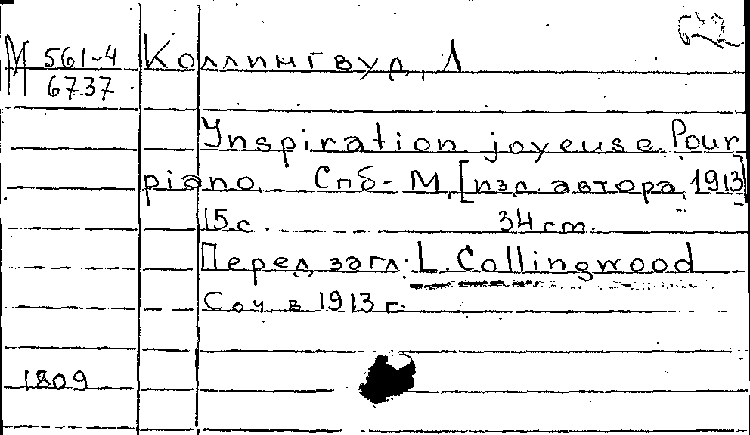 М 561-4 Коллингвуд, Л
6737
Inspiration joyeuse. Pour
piano. Спб-М, [изд. автора, 1913]
15 с. 34 cm.
Перед загл: L. Collingwood
Соч в 1913 г.
1809